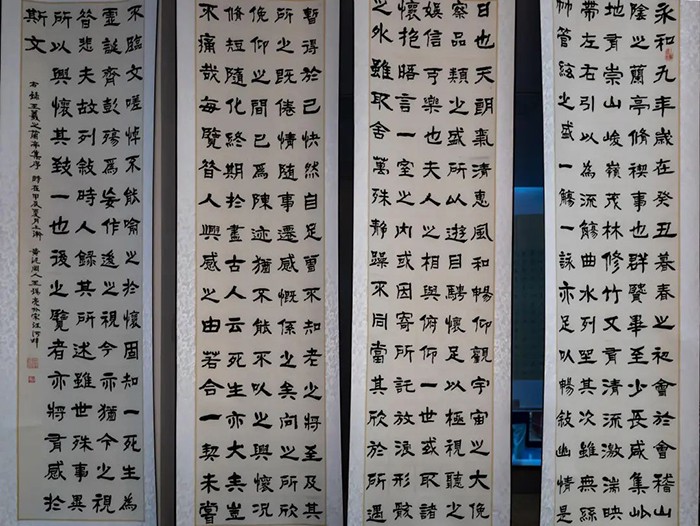 永和九年歲在癸丑暮春之初會於會稽山
陰之蘭亭脩禊事也群賢畢至少長咸集此
地有崇山峻嶺茂林修竹又有清流激湍映
帶左右引以為流觴曲水列坐其次雖無絲
竹管絃之盛一觴一詠亦足以暢敘幽情是
日也天朗氣清惠風和暢仰觀宇宙之大俛
察品類之盛所以遊目騁懷足以極視聽之
娛信可樂也夫人之相與俯仰一世或取諸
懷抱晤言一室之內或因寄所託放浪形骸
之外雖取舍萬殊靜躁不同當其欣於所遇
暫得於己快然自足曾不知老之將至及其
所之既倦情隨事遷感慨係之矣向之所欣
俛仰之間已為陳迹猶不能不以之興懷況
脩短隨化終期於盡古人云死生亦大矣豈
不痛哉每覽昔人興感之由若合一契未嘗
不臨文嗟悼不能喻之於懷固知一死生為
虛誕齊彭殤為妄作後之視今亦猶今之視
昔悲夫故列敘時人錄其所述雖世殊事異
所以興懷其致一也後之覽者亦將有感於
斯文
右錄王羲之蘭亭集序 時在甲辰夏月上澣